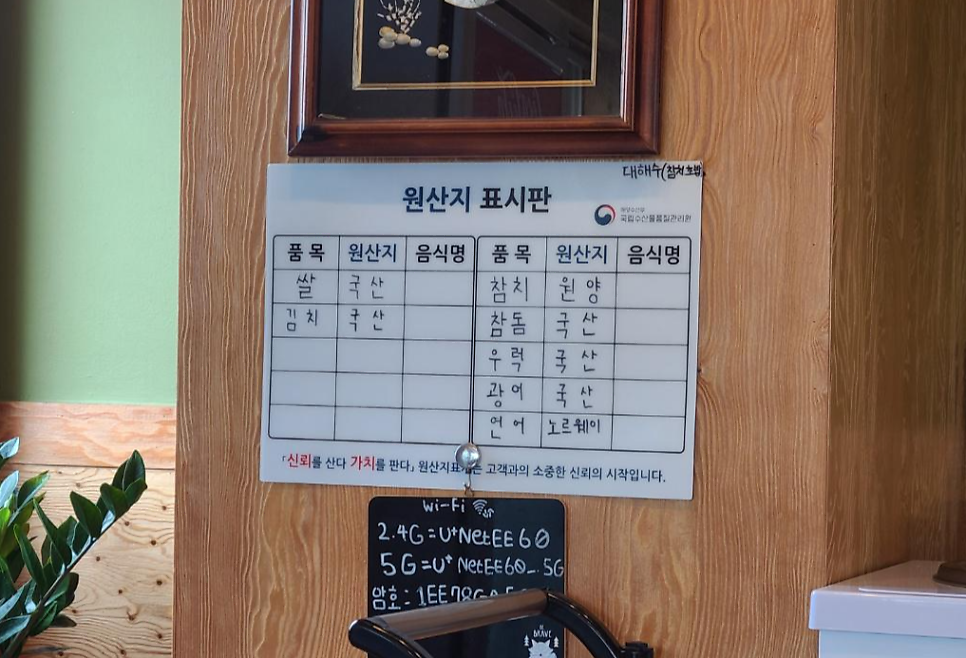 대해수(참치초밥)
원산지 표시판
해양수산부
국립수산물품질관리원
품 목 원산지 음식명 품 목 원산지 음식명
쌀 국 산 참 치 원 양
김 치 국 산 참 돔 국 산
우 럭 국 산
광 어 국 산
연 어 노르웨이
「신뢰를 산다 가치를 판다」 고객과의 소중한 신뢰의 시작입니다.
Wi-Fi
2.4G=U+NetEE60
5G=U+NetEE60_.5G
암호:
BRAVE